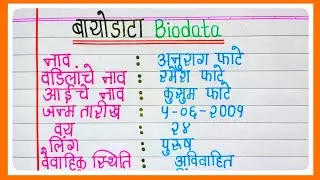 बायोडाटा Biodata
नाव : अनुराग फाटे
वडिलांचे नाव : रमेश फाटे
आईचे नाव : कुसुम फाटे
जन्म तारीख : ५-०६-२००१
वय : २४
लिंग : पुरुष
वैवाहिक स्थिति : अविवाहित